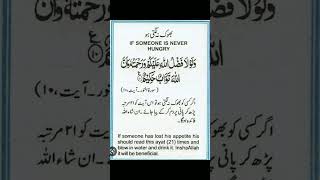 بھوک نہ لگتی ہو
IF SOMEONE IS NEVER
HUNGRY
وَلَوْلَا فَضْلُ اللّٰهِ عَلَيْكُمْ وَرَحْمَتُهٗ وَاَنَّ
اللّٰهَ تَوَّابٌ حَكِيْمٌ
(سورۃ النور۔ آیت ۱۰)
اگر کسی کو بھوک نہ لگتی ہو تو اس آیت کو ۲۱ مرتبہ
پڑھ کر پانی پر دم کر کے پیا جائے۔ ان شاء اللہ
فائدہ ہوگا۔
If someone has lost his appetite his
should read this ayat (21) times and
blow in water and drink it. InshaAllah
it will be beneficial.